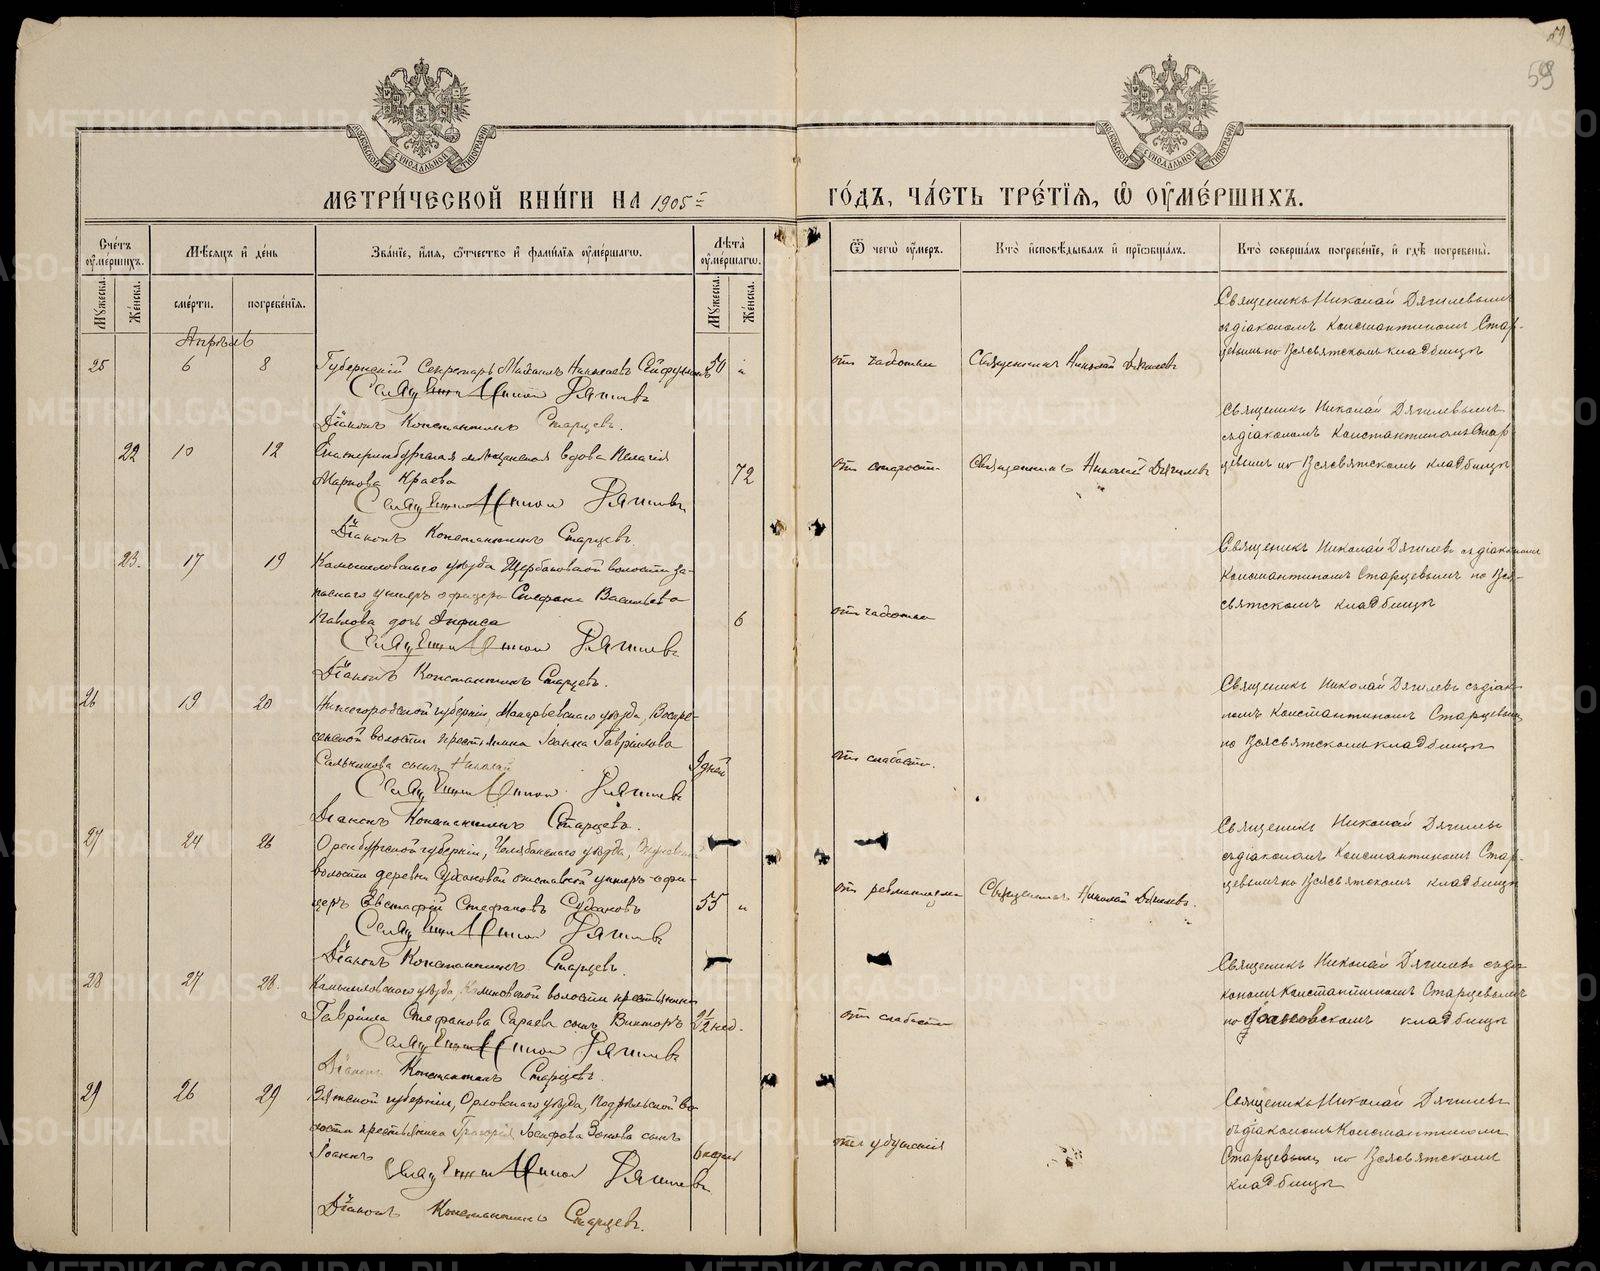 59
59
МОСКОВСКОЙ СѴНОДАЛЬНОЙ ТИПОГРАФІИ
МОСКОВСКОЙ СѴНОДАЛЬНОЙ ТИПОГРАФІИ
МЕТРИ́ЧЕСКОЙ КНИ́ГИ НА 1905 г҃
ГО́ДЪ, ЧА́СТЬ ТРЕ́ТІЯ, Ѡ҆ ОУ҆МЕ́РШИХЪ.
Сче́тъ оу҆ме́ршихъ.
Мѣ́сяцъ и҆ де́нь
Зва́нїе, и҆́мя, ѻ҆́тчество и҆ фами́лїя оу҆ме́ршагѡ.
Лѣ́та оу҆ме́ршагѡ.
Ѿ чегѡ̀ оу҆́меръ.
Кто̀ и҆сповѣ́дывалъ и҆ прїѡбща́лъ.
Кто̀ соверша́лъ погребе́нїе, и҆ гдѣ̀ погребены̀.
Му́жеска.
Же́нска.
сме́рти.
погребе́нїя.
Му́жеска.
Же́нска.
Апрѣль
25 6 8 Губернскій Секретарь Михаилъ Николаевъ 50 "
Священникъ Николай Дягилевъ
Діаконъ Константинъ Старцевъ.
Священникъ Николай Дягилев
Священникъ Николай Дягилевымъ
съ діакономъ Константиномъ Стар-
цевымъ по Всясвятскомъ кладбищѣ
22 10 12 Екатеринбургская мѣщанская вдова Пелагія
Маркова Краева 72
Священникъ Николай Дягилевъ
Діаконъ Константинъ Старцевъ.
отъ старости Священникъ Николай Дягилевъ
Священникъ Николай Дягилевымъ
съ діакономъ Константиномъ Стар
цевымъ по Всясвятскомъ кладбищѣ
23. 17 19 Камышловскаго уѣзда Щербаковской волости за-
паснаго унтеръ офицера Стефана Васильева
Павлова дочь Анфиса 6
Священникъ Николай Дягилевъ
Діаконъ Константинъ Старцевъ.
Священникъ Николай Дягилевъ съ діакономъ
Константиномъ Старцевымъ по Вся-
святскомъ кладбищѣ
26 19 20 Нижегородской губерніи, Макарьевскаго уѣзда, Воскре-
сенской волости крестьянина Іоанна Гаврилова
Сальникова сынъ Николай 9 дней
Священникъ Николай Дягилевъ
Діаконъ Константинъ Старцевъ.
отъ слабости.
Священникъ Николай Дягилевъ съ діако-
номъ Константиномъ Старцевымъ
по Всясвятскомъ кладбищѣ
27 24 26 Оренбургской губерніи, Челябинскаго уѣзда,
волости деревни Сухановой отставной унтеръ-офи-
церъ Евстафій Стефановъ Сухановъ 55 "
Священникъ Николай Дягилевъ
Діаконъ Константинъ Старцевъ.
отъ ревматизма Священникъ Николай Дягилевъ.
Священникъ Николай Дягилевъ
съ діакономъ Константиномъ Стар-
цевымъ по Всясвятскомъ кладбищѣ
28 27 28. Камышловскаго уѣзда, волости крестьянина
Гавріила Стефанова Сараева сынъ Викторъ 2½ нед.
Священникъ Николай Дягилевъ
Діаконъ Константинъ Старцевъ.
отъ слабости
Священникъ Николай Дягилевъ съ діа-
кономъ Константиномъ Старцевымъ
по кладбищѣ
29 26 29 Вятской губерніи, Орловскаго уѣзда, во-
лости крестьянина Григорія Іосифова Зонова сынъ
Іоаннъ
Священникъ Николай Дягилевъ
Діаконъ Константинъ Старцевъ.
Священникъ Николай Дягилевъ
съ діакономъ Константиномъ
Старцевымъ по Всясвятскомъ
кладбищѣ
METRIKI.GASO-URAL.RU